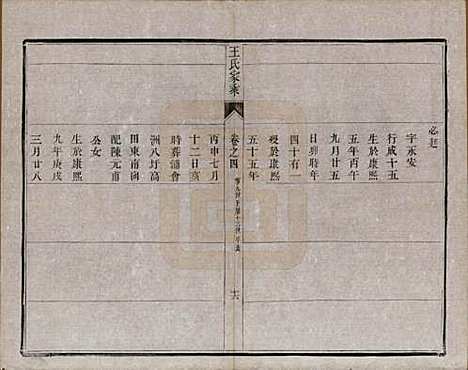 必超
字永安
行成十五
生於康熙
五年丙午
九月廿五
日卯時年
四十有一
歿於康熙
五十五年
王氏家乘
卷之四
十六
丙申七月
十二日亥
時葬蒲會
洲八圩高
田東南向
配陳元甫
公女
生於康熙
九年庚戌
三月廿八